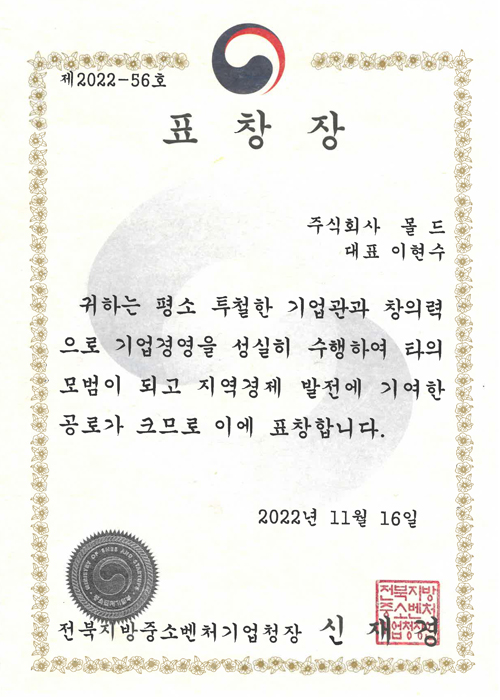 제2022-56호
표 창 장
주식회사 몰 드
대표 이현수
귀하는 평소 투철한 기업관과 창의력
으로 기업경영을 성실히 수행하여 타의
모범이 되고 지역경제 발전에 기여한
공로가 크므로 이에 표창합니다.
2022년 11월 16일
전북지방중소벤처기업청장 신 재 경
전북지방
중소벤처
기업청장